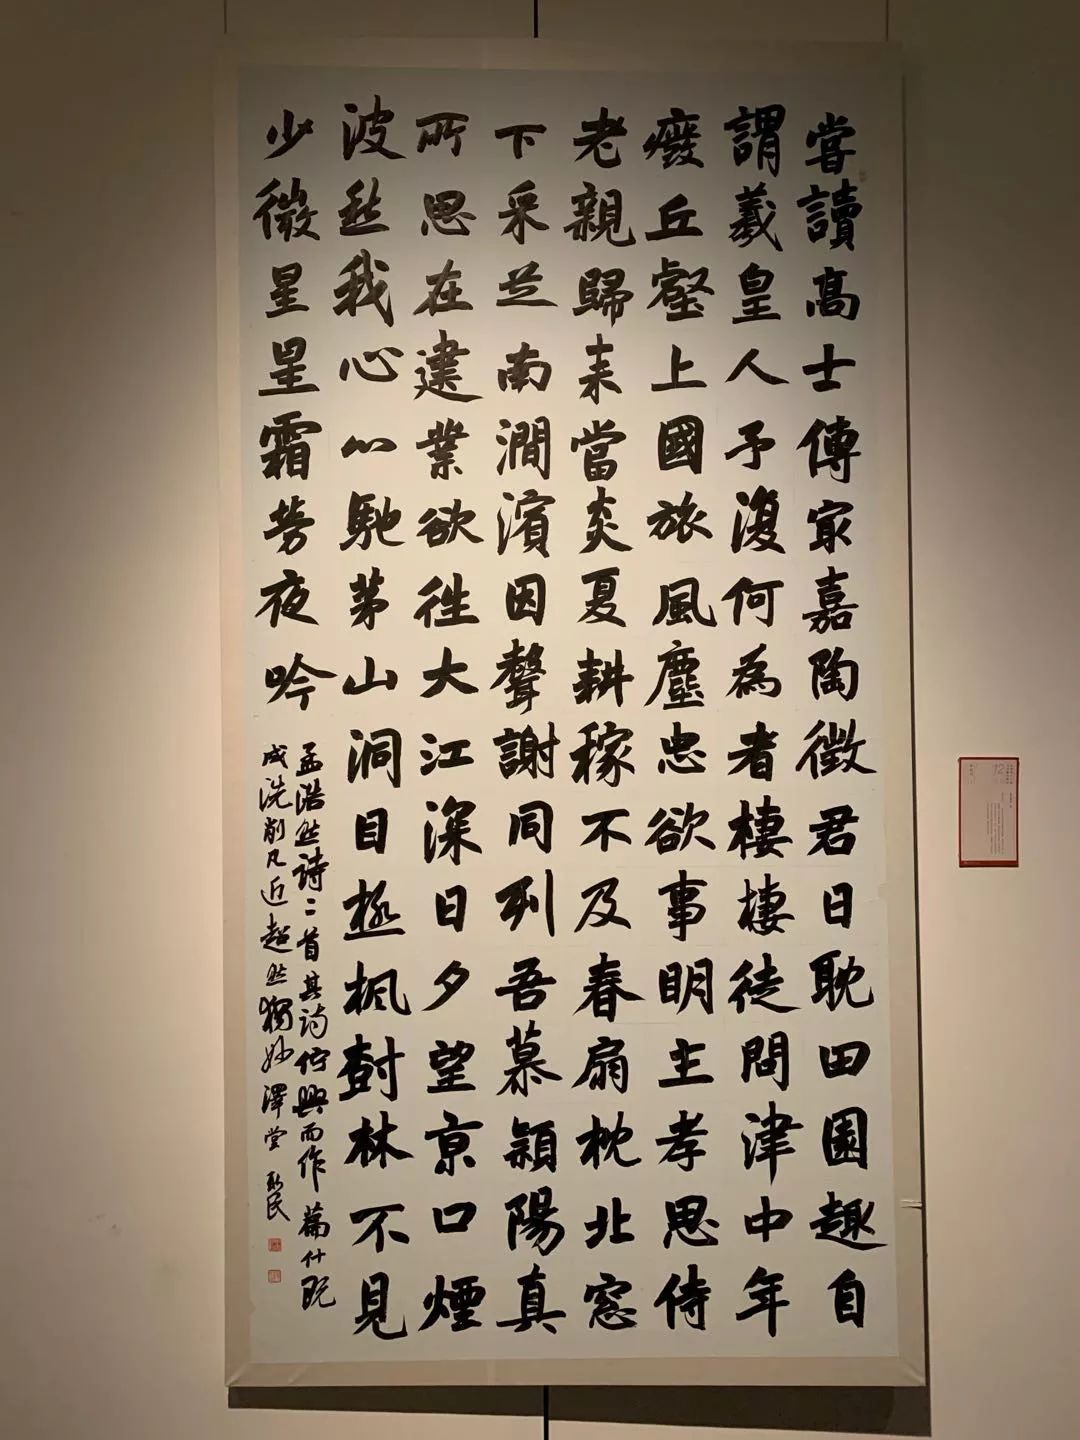 嘗讀高士傳冣嘉陶徵君日耽田園趣自
謂羲皇人予復何為者棲棲徒問津中年
癈丘壑上國旅風塵忠欲事明主孝思侍
老親歸来當炎夏耕稼不及春扇枕北窓
下采芝南澗濱因聲謝同列吾慕潁陽真
所思在建業欲往大江深日夕望京口煙
波愁我心心馳茅山洞目極楓樹林不見
少微星星霜勞夜吟
孟浩然詩二首其詩佇興而作篇什既
成洗削凡近超然獨妙澤堂